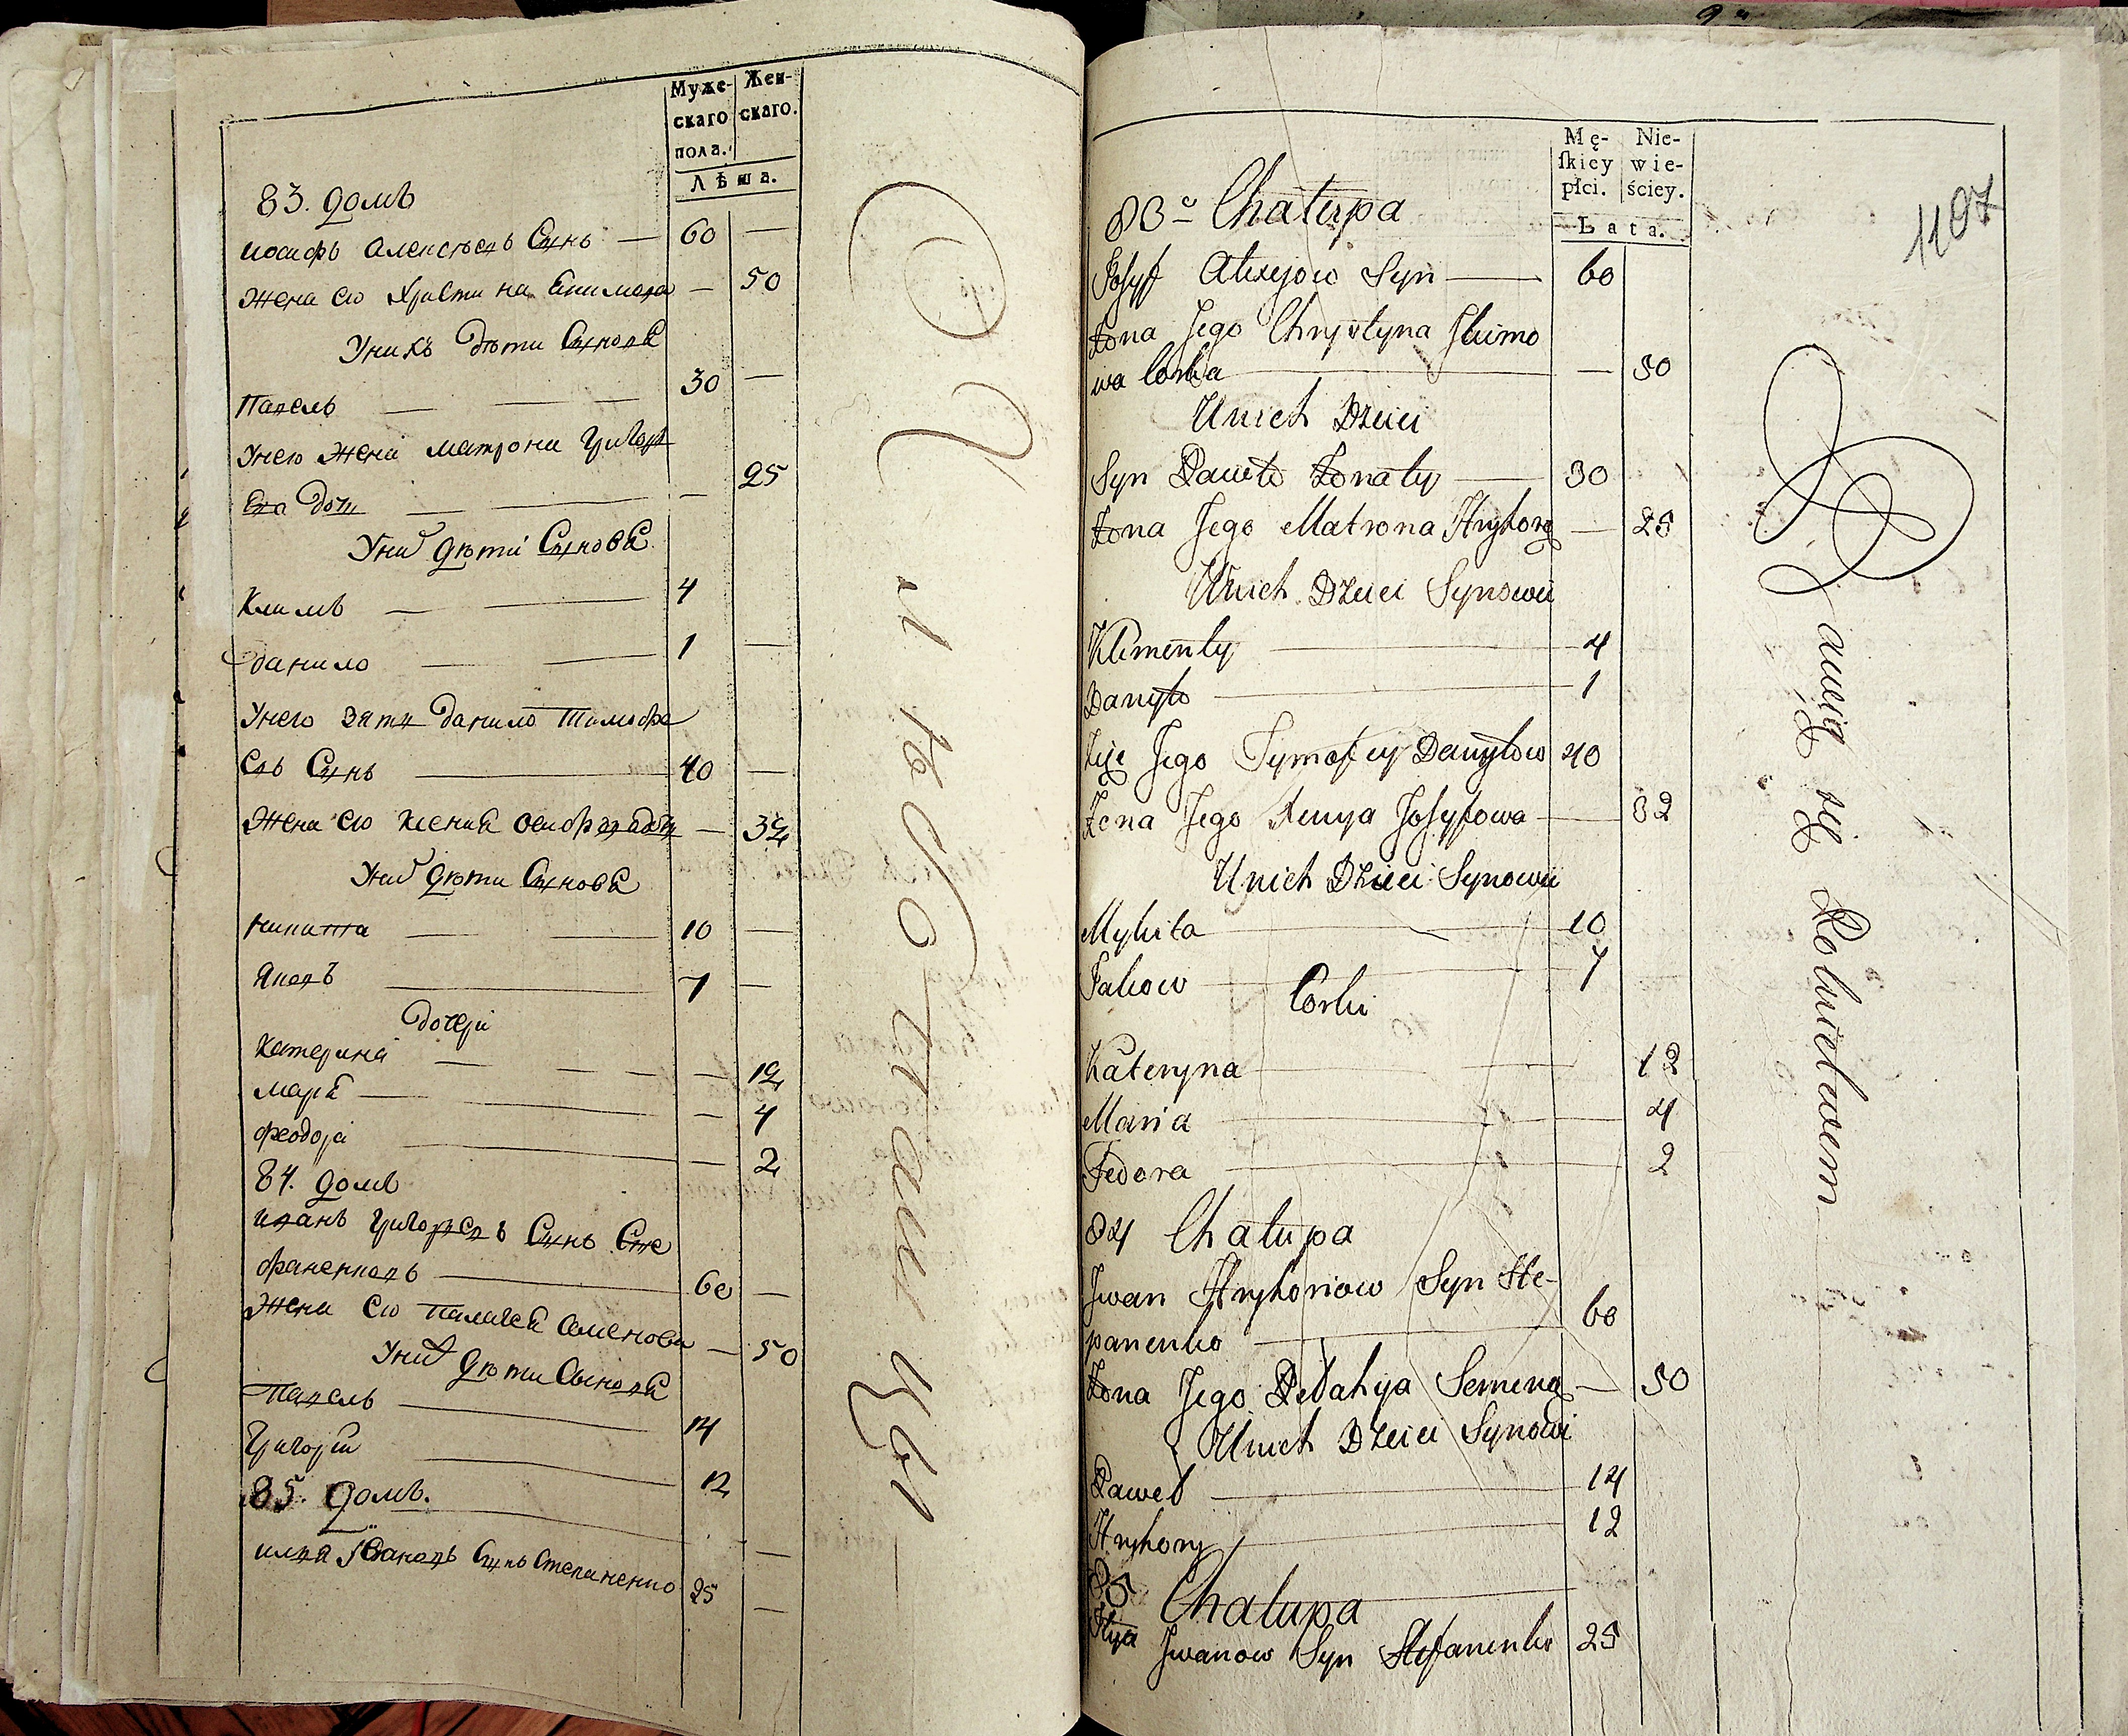 Муже-
скаго
пола.
Жен-
скаго.
Лѣта.
83. домъ
иосифъ алексѣевъ Сынъ — 60 —
жена его Христина Екимова — 50
Унихъ дѣти Сынове
Павелъ — 30 —
Унего жена матрона Григорь
ева дочь — 25
Уних дѣти Сынове
Климъ — 4
данило — 1 —
Унего зять данило Тимофе
евъ Сынъ — 40 —
жена его ксения осифова дочь — 32
Уних дѣти Сынове
никита — 10 —
Яковъ — 7 —
дочери
катерина — 12
мария — 4
феодора — 2
84. домъ
иванъ григорьевъ Сынъ Сте
фаненковъ — 60 —
жена его палагея семенова — 50
Уних дѣти Сынове
Павелъ — 14
Григорий — 12
85. домъ.
илья Ивановъ Сынъ Степаненко 25 —
Mę-
ſkiey
płci.
Nie-
wie-
ściey.
Lata.
1107
83 Chałupa
Josyf Alexejow Syn — 60
Żona Jego Chrystyna Jkimo
wa Corka — 50
Unich Dzieci
Syn Pawło Żonaty — 30
Żona Jego Matrona Hryhorą — 25
Unich Dzieci Synowii
Klimenty — 4
Danyło — 1
Zięć Jego Tymofiey Danyłow 40
Żona Jego Xenya Josyfowa — 32
Unich Dzieci Synowii
Mykita — 10
Jakow — 7
Corki
Kateryna — 12
Maria — 4
Fedora — 2
84 Chałupa
Jwan Hryhoriow Syn Ste-
panenko — 60
Żona Jego Pełahya Semeną — 50
Unich Dzieci Synowi
Paweł — 14
Hryhory — 12
85 Chałupa
Jlya Jwanow Syn Stefanenko 25
awią się Robieławem